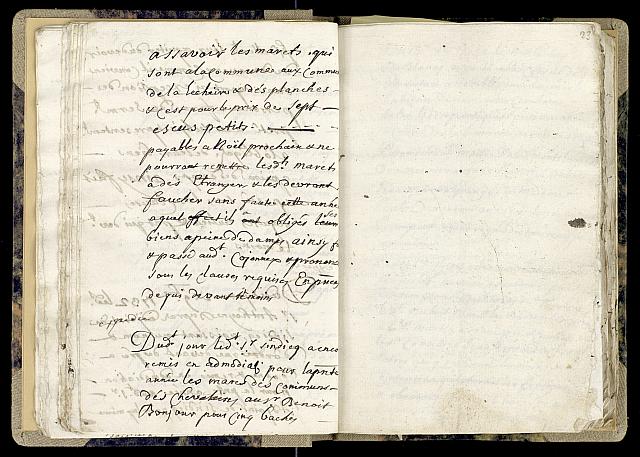 assavoir les marets qui
sont a la commune aux commus
de la Lecheire & des planches
& c'est pour le prix de sept
escus petits
payables a Noël prochain & ne
pourront remettre lesd.ts marets
a des Etranger & les devront
faucher sans faute cette année
a quel effect ils ont obligés leurs
biens a peine de damps ainsy f
& passé aud.t Cojonnex & prononc
sous les clauses requises En prnce
de qui devant temoins
Dud.t jour led.t S.r sindicq a enco
remis en admodiāō pour la pnte
année les marets des Communs
des chevaleires au sr Benoit
Bonjour pour cinq baches
22